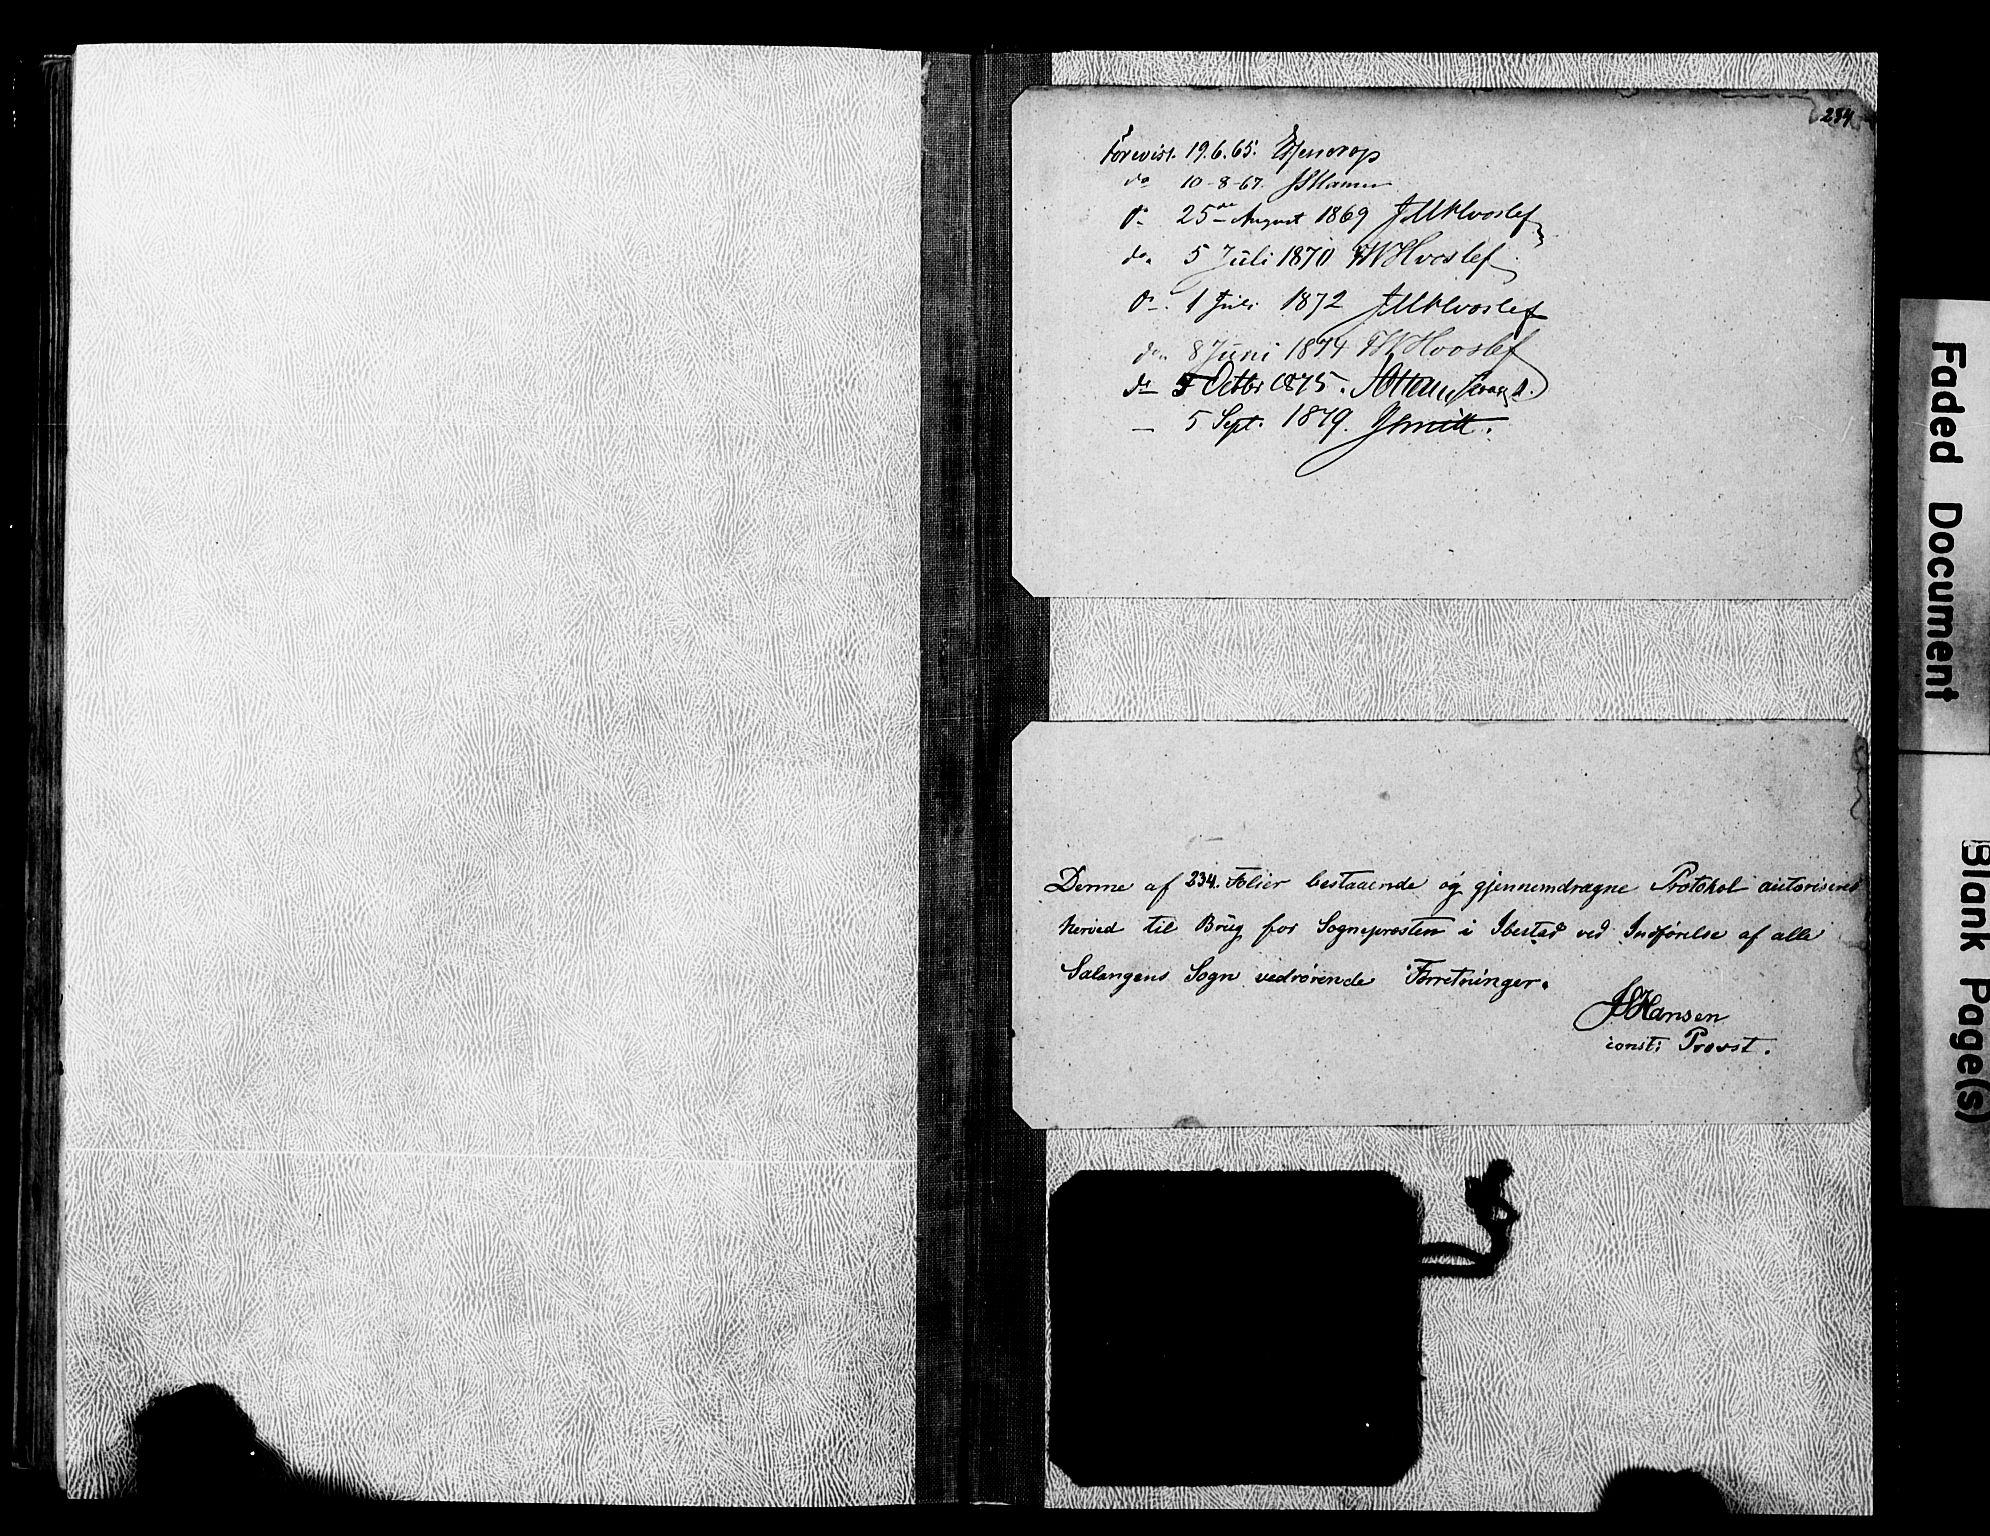 234
Forevist. 19.6.65.
do 10-8-67. JSHansen
do 25de August 1869 FWHvoslef
do 5 Juli 1870 FWHvoslef
do. 1 Juli 1872 FWHvoslef
do 8 Juni 1874 FWHvoslef
do Octbr 1875.
— 5 Sept. 1879. JSmitt.
Denne af 234. Folier bestaaende og gjennemdragne Protokol autoriseres
herved til Brug for Sognepræsten i Ibestad ved Indførelse af alle
Salangens Sogn vedrørende Forretninger.
JSHansen
const: Provst.
Faded Document
Blank Page(s)